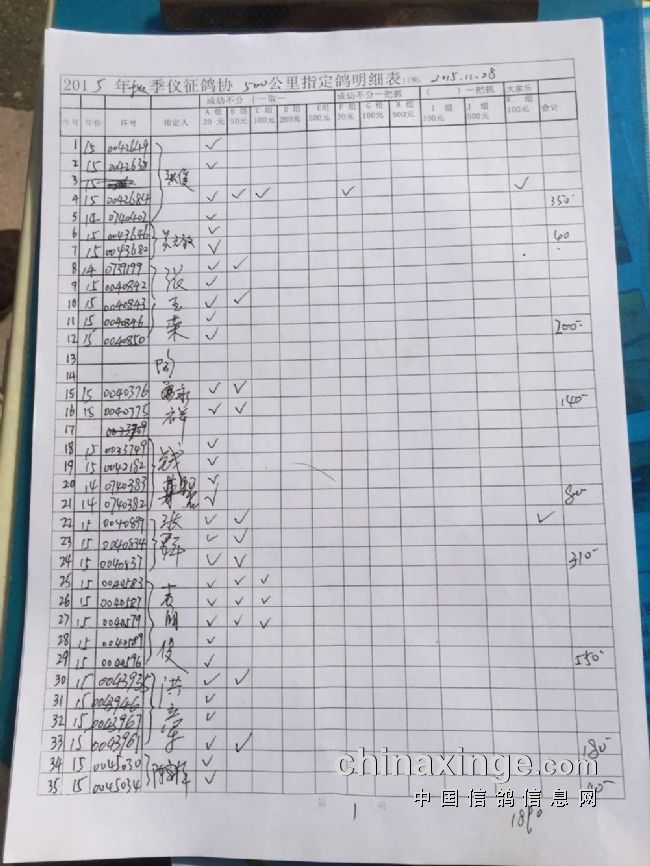 2015年秋季仪征鸽协 500公里指定鸽明细表 日期: 2015.11.28
成功不分 一取一 成功不分一把抓 ( )一把抓 大家乐
序号 年份 环号 指定人 A组20元 B组50元 C组100元 D组200元 E组500元 F组20元 G组100元 H组500元 I组100元 J组500元 K组100元 合计
1 15 0042649 ✓
2 15 0042638 ✓
3 15
4 15 0042684 ✓ ✓ ✓ ✓ ✓ 350-
5 14 0740402 ✓
6 15 0043646 ✓ 40
7 15 0043680 ✓
8 14 0739199 张 ✓ ✓
9 15 0040842 ✓
10 15 0040843 玉 ✓ ✓
11 15 0040846 ✓
12 15 0040850 荣 ✓ 200-
13
14 陶
15 15 0040376 ✓ ✓
16 15 0040775 ✓ ✓ 140-
17
18 15 0033749 ✓
19 15 0042182 钱 ✓
20 14 0740383 ✓
21 14 0740382 ✓ 80-
22 15 0040839 张 ✓ ✓ ✓
23 15 0040834 ✓ ✓
24 15 0040837 ✓ ✓ 310-
25 15 0040583 ✓ ✓ ✓
26 15 0040587 ✓ ✓ ✓
27 15 0040579 ✓ ✓ ✓
28 15 0040589 ✓
29 15 0040596 俊 ✓ 550-
30 15 0043935 洪 ✓ ✓
31 15 0043946 ✓
32 15 0043967 ✓
33 15 0043969 ✓ ✓ 180-
34 15 0045030 ✓
35 15 0045034 ✓
第 1 页
1890
chinaxinge.com
中国信鸽信息网